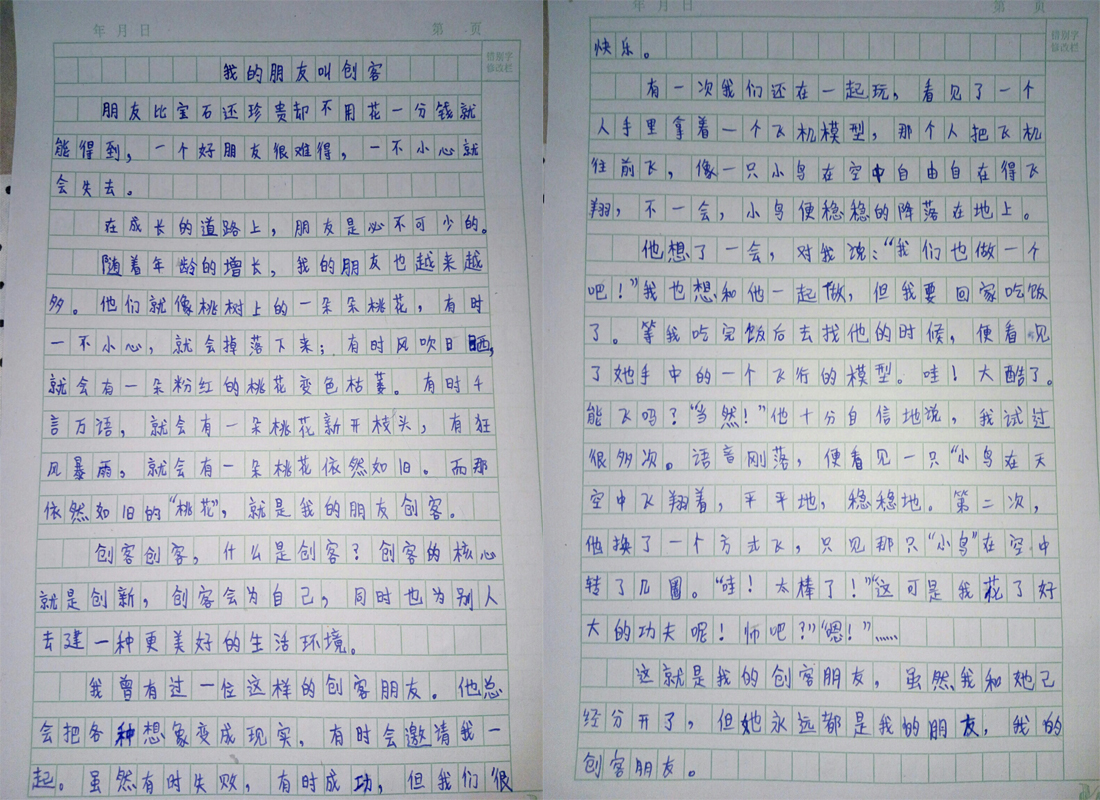 年 月 日
第 页
错别字
修改栏
我的朋友叫创客
朋友比宝石还珍贵却不用花一分钱就
能得到，一个好朋友很难得，一不小心就
会失去。
在成长的道路上，朋友是必不可少的。
随着年龄的增长，我的朋友也越来越
多。他们就像桃树上的一朵朵桃花，有时
一不小心，就会掉落下来；有时风吹日晒，
就会有一朵粉红的桃花变色枯萎。有时千
言万语，就会有一朵桃花新开枝头，有狂
风暴雨，就会有一朵桃花依然如旧。而那
依然如旧的“桃花”，就是我的朋友创客。
创客创客，什么是创客？创客的核心
就是创新，创客会为自己，同时也为别人
去建一种更美好的生活环境。
我曾有过一位这样的创客朋友。他总
会把各种想象变成现实，有时会邀请我一
起。虽然有时失败，有时成功，但我们很
第 页
错别字
修改栏
快乐。
有一次我们还在一起玩，看见了一个
人手里拿着一个飞机模型，那个人把飞机
往前飞，像一只小鸟在空中自由自在得飞
翔，不一会，小鸟便稳稳的降落在地上。
他想了一会，对我说：“我们也做一个
吧！”我也想和他一起做，但我要回家吃饭
了。等我吃完饭后去找他的时候，便看见
了她手中的一个飞行的模型。哇！大酷了。
能飞吗？“当然！”他十分自信地说，我试过
很多次。语音刚落，便看见一只“小鸟在天
空中飞翔着，平平地，稳稳地。第二次，
他换了一个方式飞，只见那只“小鸟”在空中
转了几圈。“哇！太棒了！”“这可是我花了好
大的功夫呢！帅吧？”“嗯！”……
这就是我的创客朋友，虽然我和她已
经分开了，但她永远都是我的朋友，我的
创客朋友。